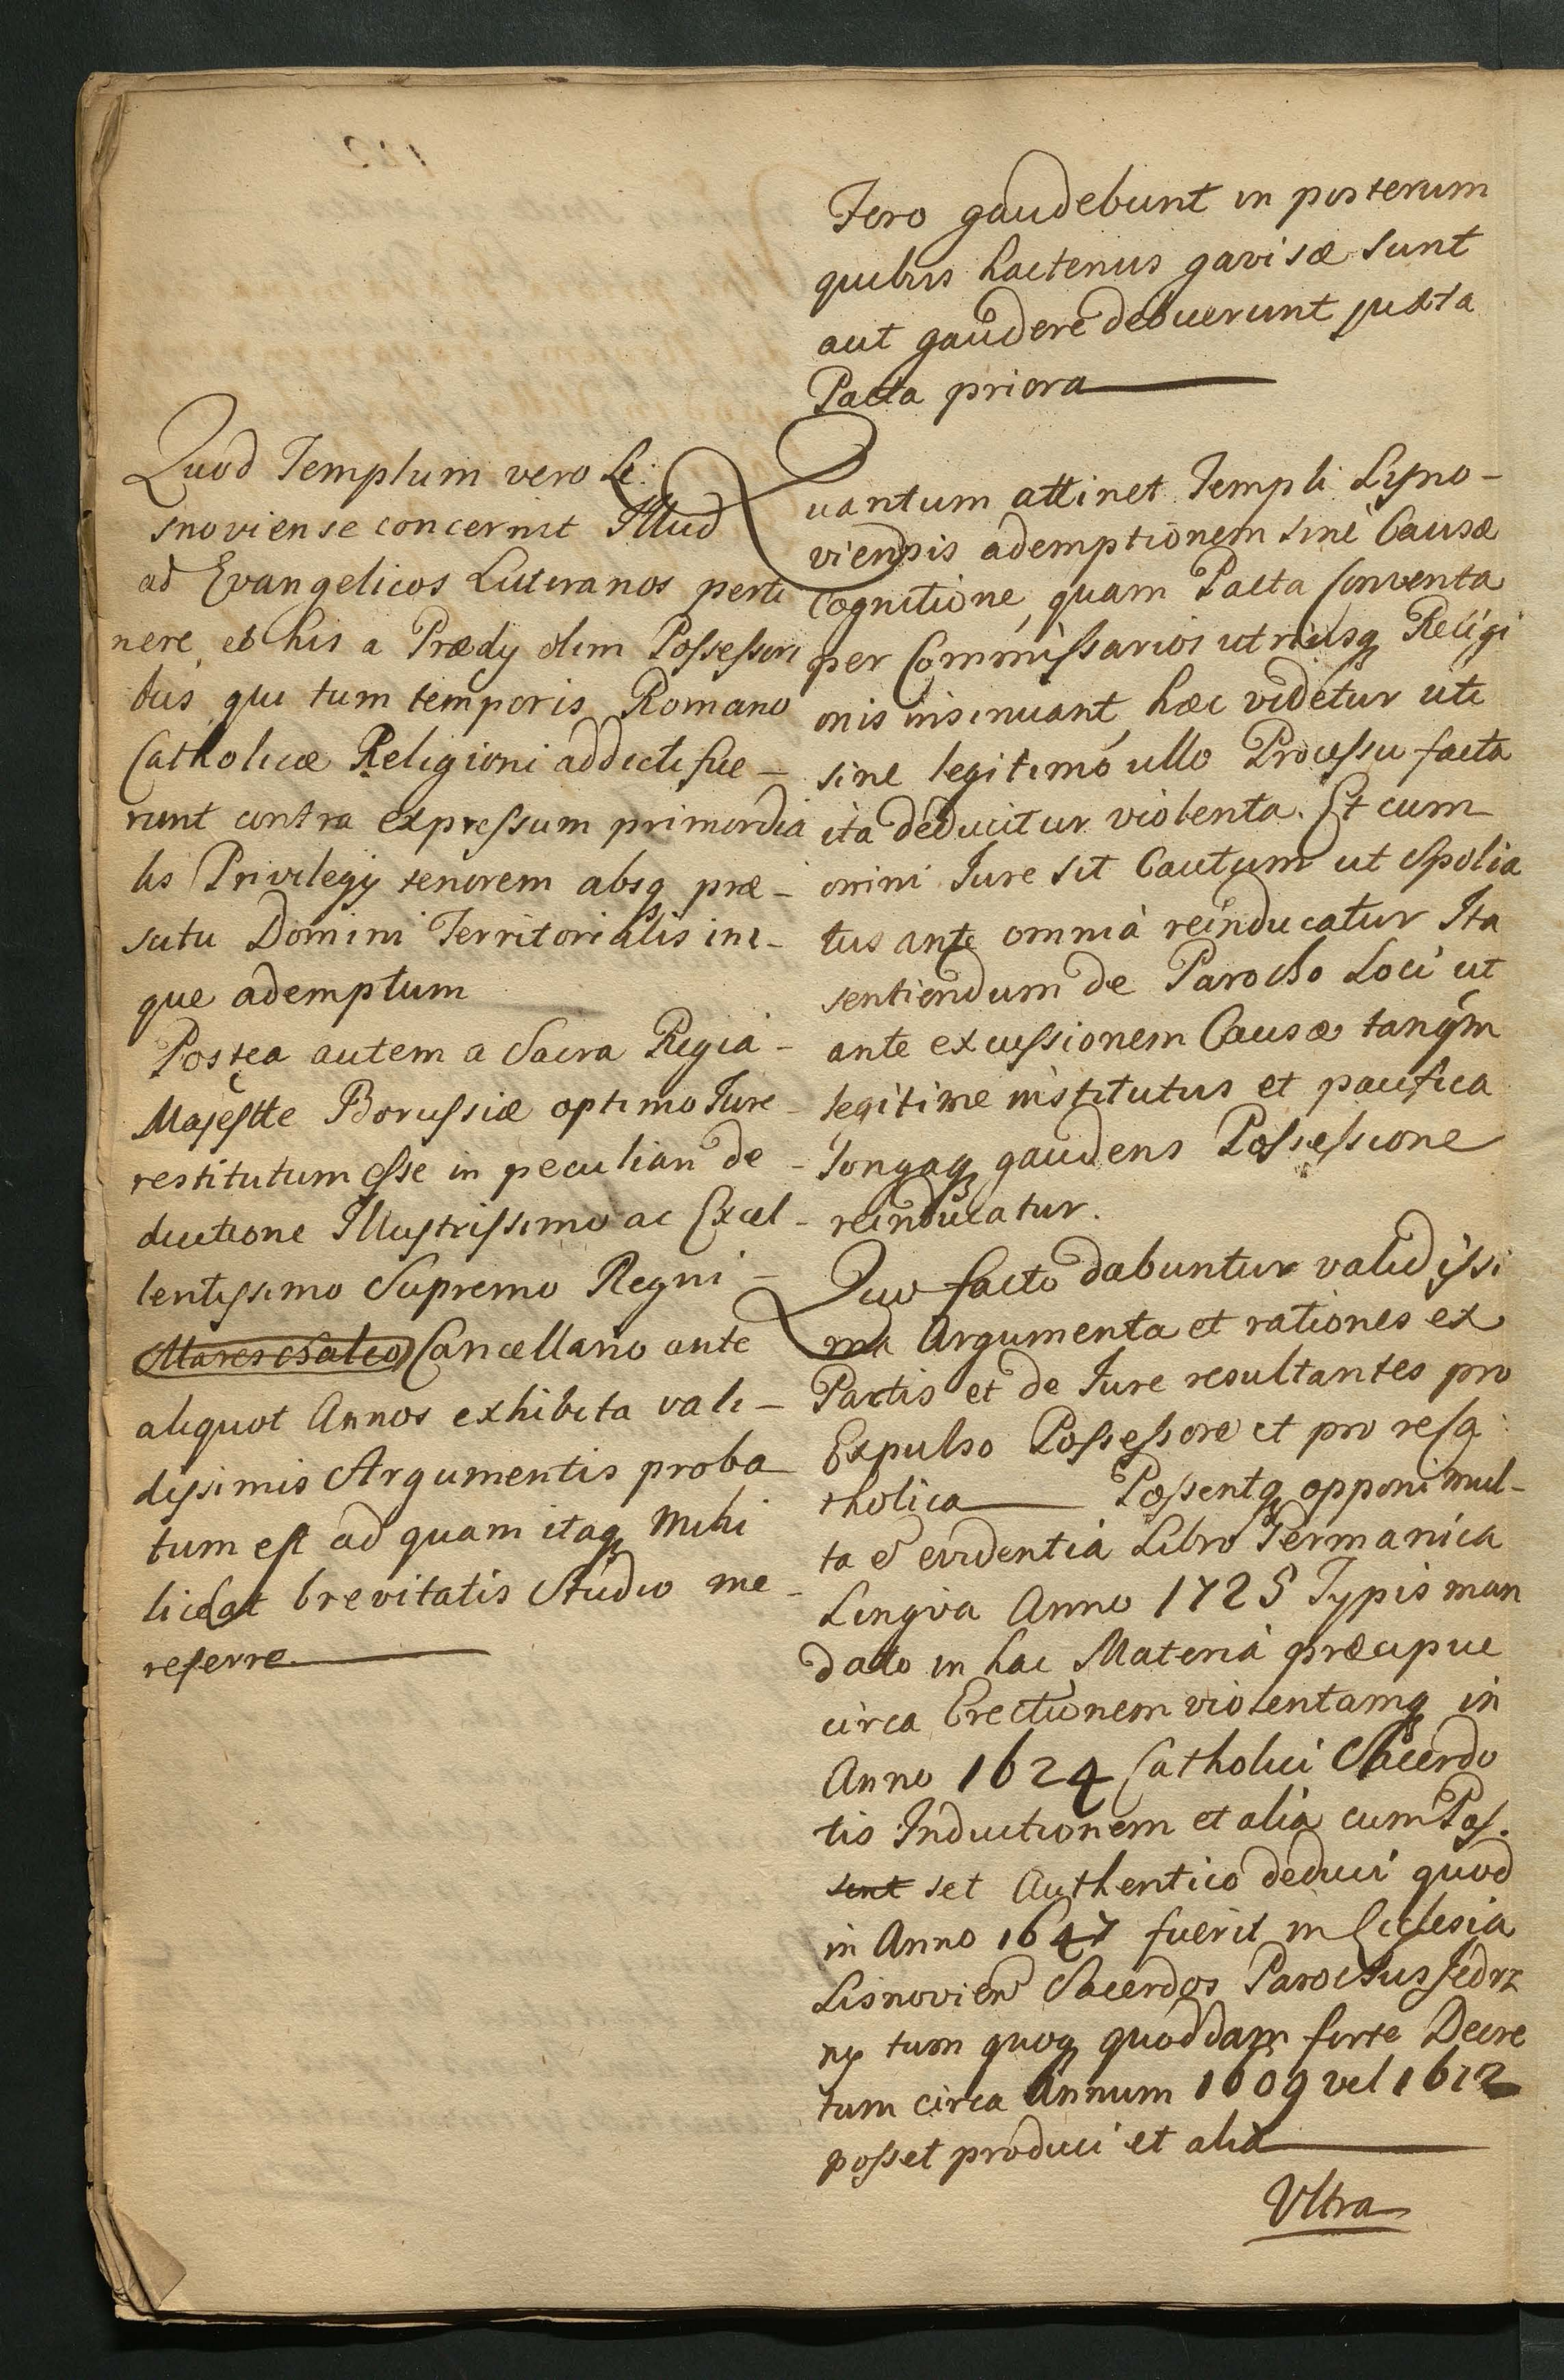 Quod Templum vero Li:
snoviense concernit Illud
ad Evangelicos Luteranos perti
nere, et his a Prædy olim Possessori
bus qui tum temporis Romano
Catholicæ Religioni addicti fue –
runt contra expressum primordia
lis Privilegy tenorem absq præ –
scitu Domini Territorialis ini –
que ademptum
Postea autem a Sacra Regia –
Majestte Borussiæ optimo Jure –
restitutum esse in peculiari de –
ductione Illustrissimo ac Excel –
lentissimo Supremo Regni –
Mareschalco Cancellario ante
aliquot Annos exhibita vali –
dissimis Argumentis proba
tum est ad quam itaq mihi
liceat brevitatis Studio me –
referre.
Fero gaudebunt in posterum
quibus hactenus gavisæ sunt
aut gaudere debuerunt juxta
Pacta priora
Quantum attinet Templi Lyno –
viensis ademptionem sine Causæ
Cognitione, quam Pacta Conventa
per Commissarios utriusq Religi
onis insinuant, hæc videtur uti
sine legitimo ullo Processu facta
ita deducitur violenta. Et cum
omni Jure sit Cautum ut Spolia
tus ante omnia reinducatur Ita
sentiendum de Parocho Loci ut
ante excussionem Causæ tanqm
legitime institutus et pacifica
longaq gaudens Possessione
reinducatur.
Quo facto dabuntur validissi
ma Argumenta et rationes ex
Pactis et de Jure resultantes pro
Expulso Possessore et pro re Ca
tholica Possentq opponi mul –
ta e evidentia Libro Germanica
Lingva Anno 1725 Typis man
dato in hac Materia præcipue
circa Erectionem violentamq in
Anno 1624 Catholici Sacerdo
tis Inductionem et alia cum Pos.
sent set Authentico deduci quod
in Anno 1647 fuerit in Ecclesia
Lisnovien Sacerdos Parochus Jedrz
ny tum quoq quoddam forte Decre
tum circa Annum 1609 vel 1612
posset produci et alia
Ultra